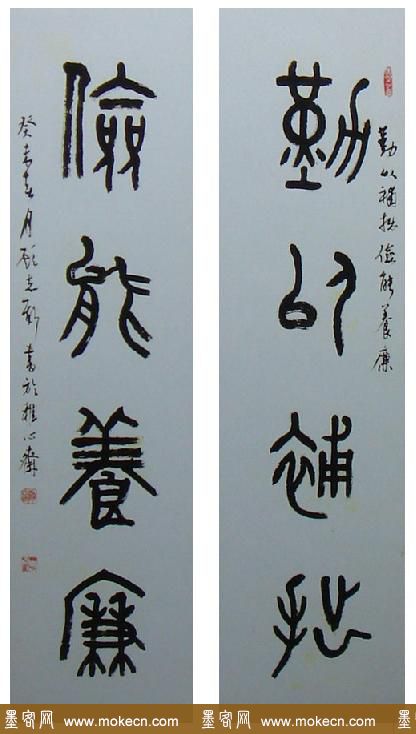 勤以補拙儉能養廉
勤以補拙
儉能養廉
癸未春月顧志新書於雅心齋
墨客网 www.mokecn.com 墨客网 www.mokecn.com